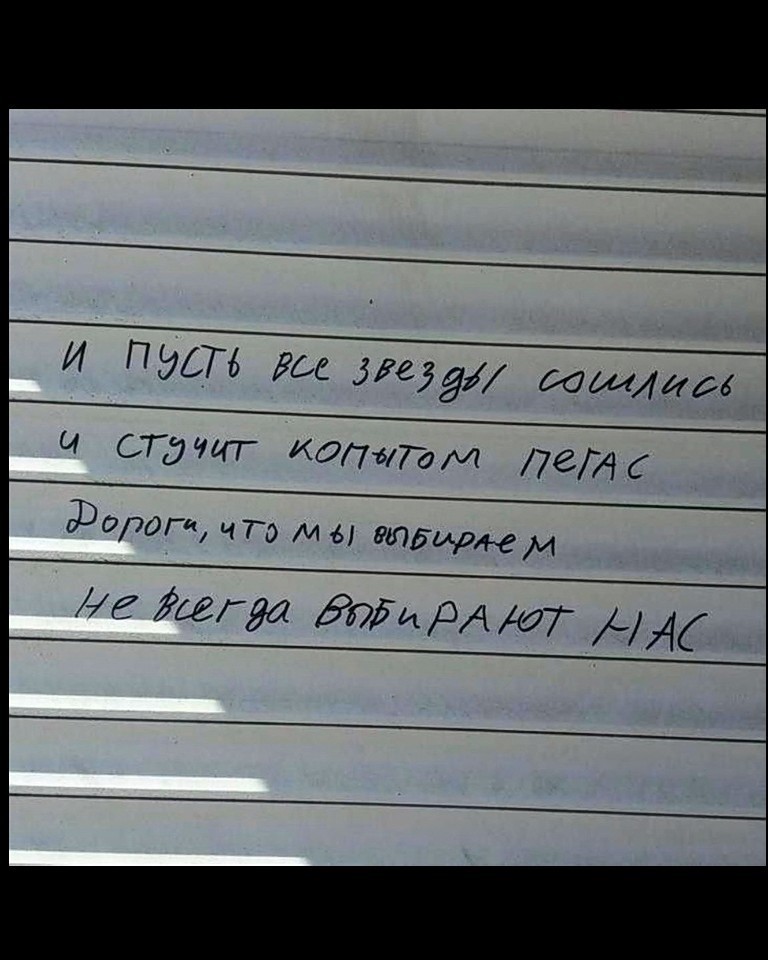 И ПУСТЬ ВСЕ ЗВЕЗДЫ СОШЛИСЬ
И СТУЧИТ КОПЫТОМ ПЕГАС
Дороги, что мы выбираем
Не всегда ВЫБИРАЮТ НАС